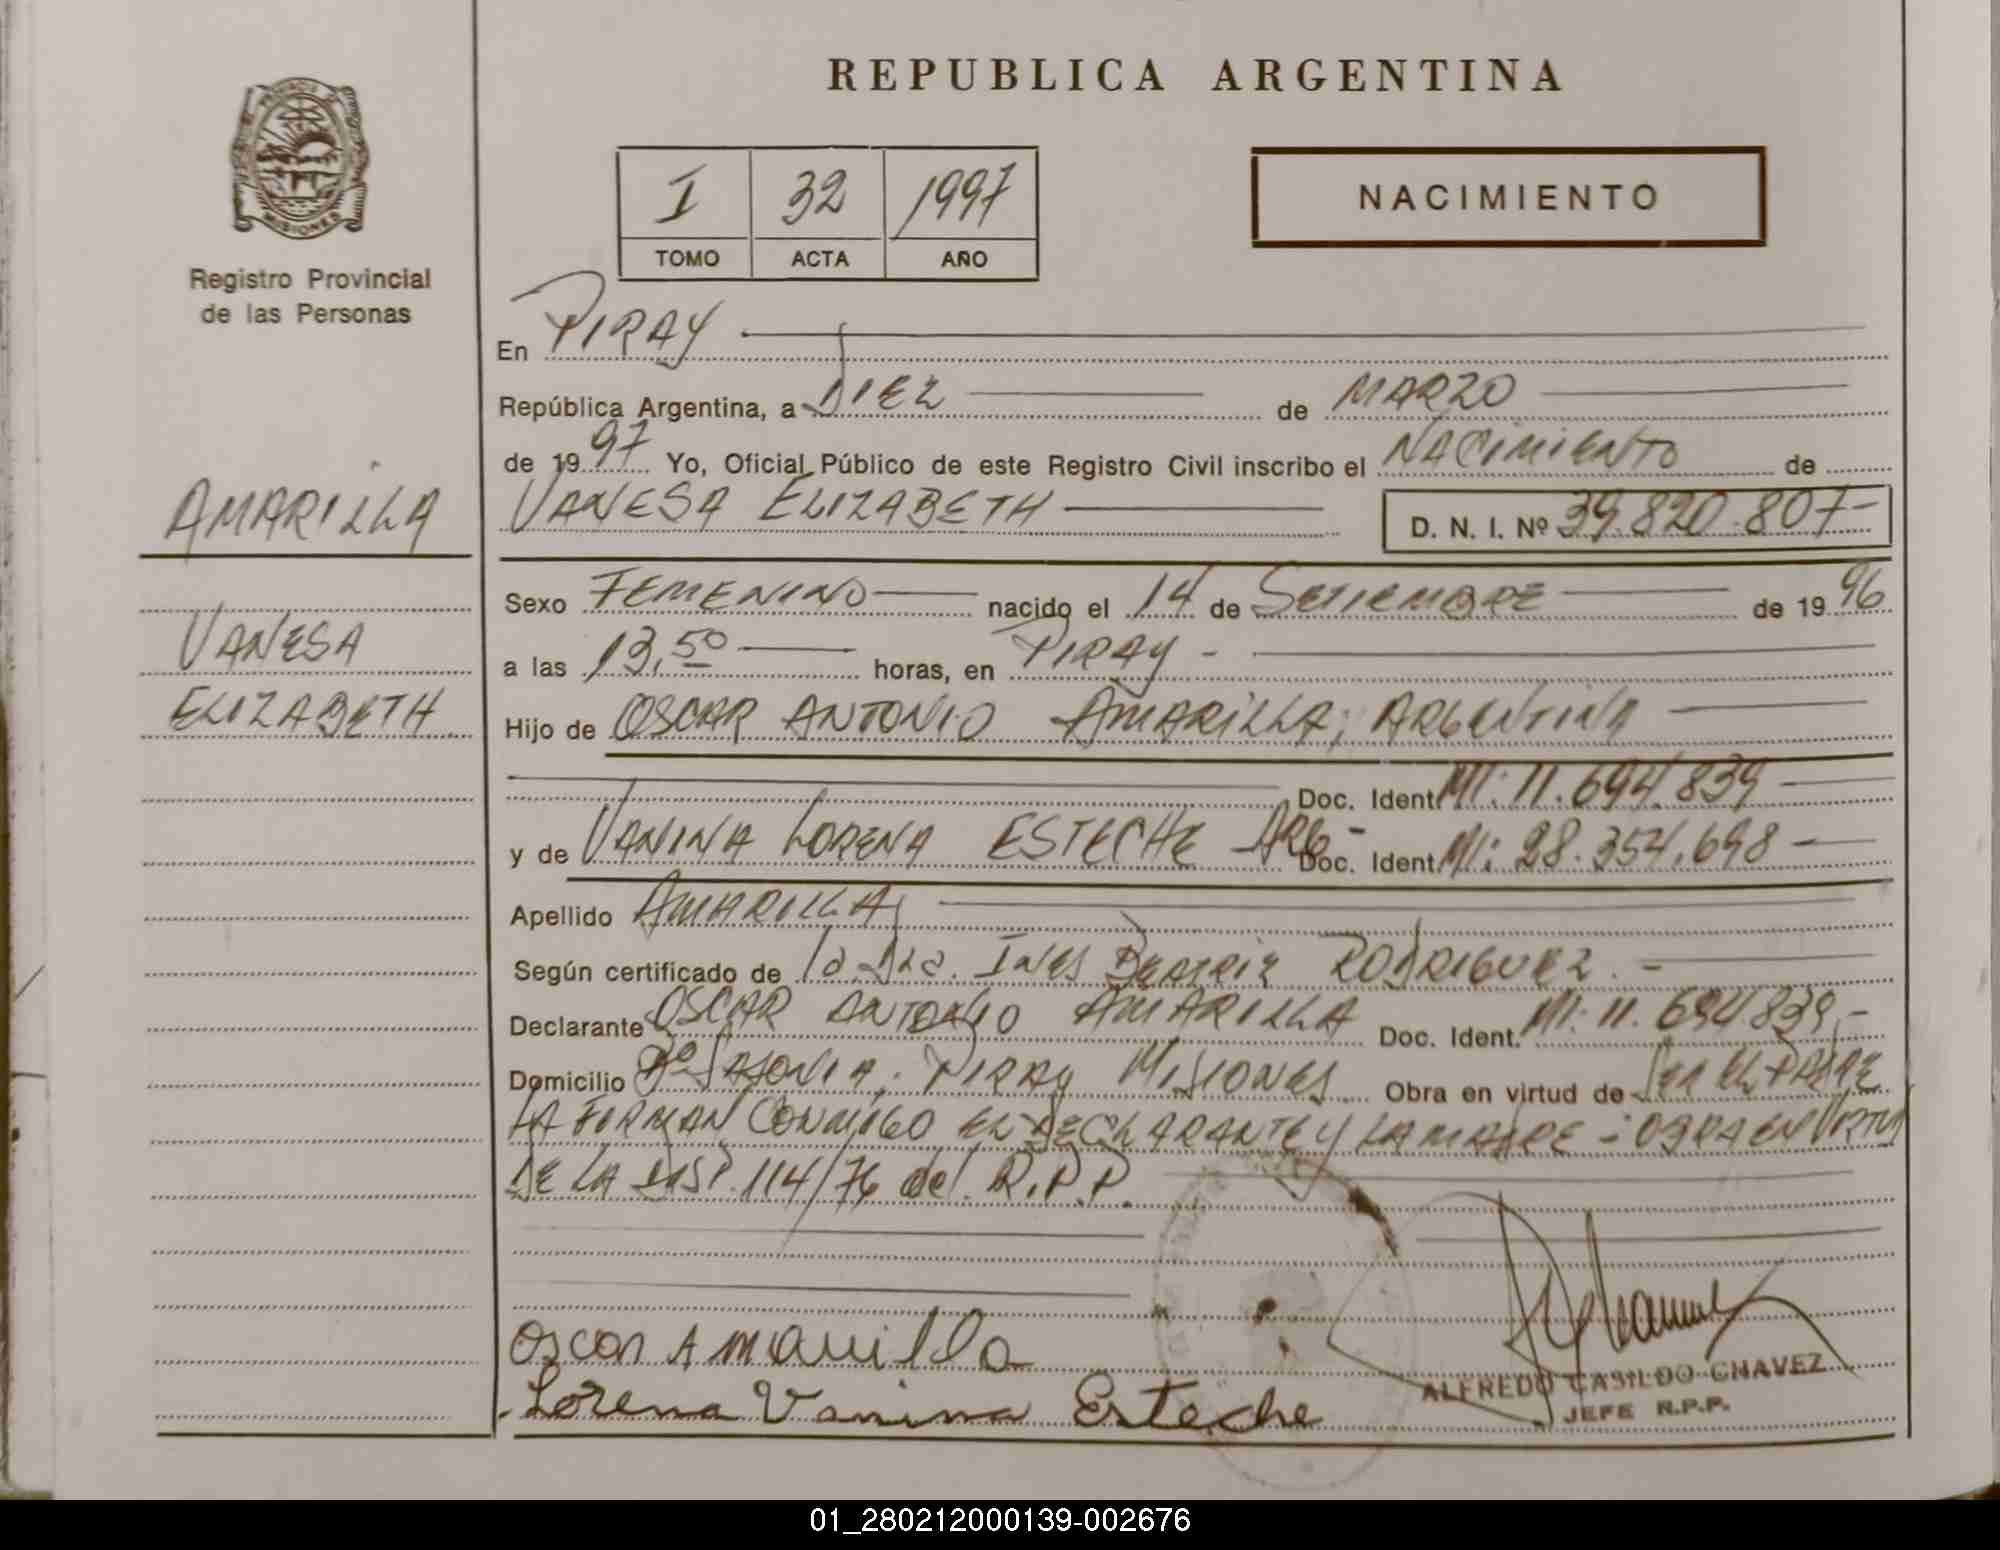 REPUBLICA ARGENTINA
PROVINCIA DE
MISIONES
Registro Provincial
de las Personas
I 32 1997
TOMO ACTA AÑO
NACIMIENTO
AMARILLA
VANESA
ELIZABETH
En PIRAY
República Argentina, a DIEZ de MARZO
de 1997 Yo, Oficial Público de este Registro Civil inscribo el NACIMIENTO de
VANESA ELIZABETH D. N. I. Nº 39.820.807-
Sexo FEMENINO nacido el 14 de SETIEMBRE de 1996
a las 13,50 horas, en PIRAY -
Hijo de OSCAR ANTONIO AMARILLA, ARGENTINA
Doc. Ident. MI: 11.694.839
y de VANINA LORENA ESTECHE ARG- Doc. Ident. MI: 28.354.698 -
Apellido AMARILLA
Según certificado de la Dra. INES BEATRIZ RODRIGUEZ. -
Declarante OSCAR ANTONIO AMARILLA Doc. Ident. MI: 11.694.839,-
Domicilio Bº SAJONIA, PIRAY MISIONES Obra en virtud de SER EL PADRE
LA FIRMAN CONMIGO EL DECLARANTE Y LA MADRE - OBRA EN VIRTUD
DE LA DISP. 114/76 del R.P.P.
Oscar Amarilla
Lorena Vanina Esteche
ALFREDO CASILDO CHAVEZ
JEFE R.P.P.
01_280212000139-002676